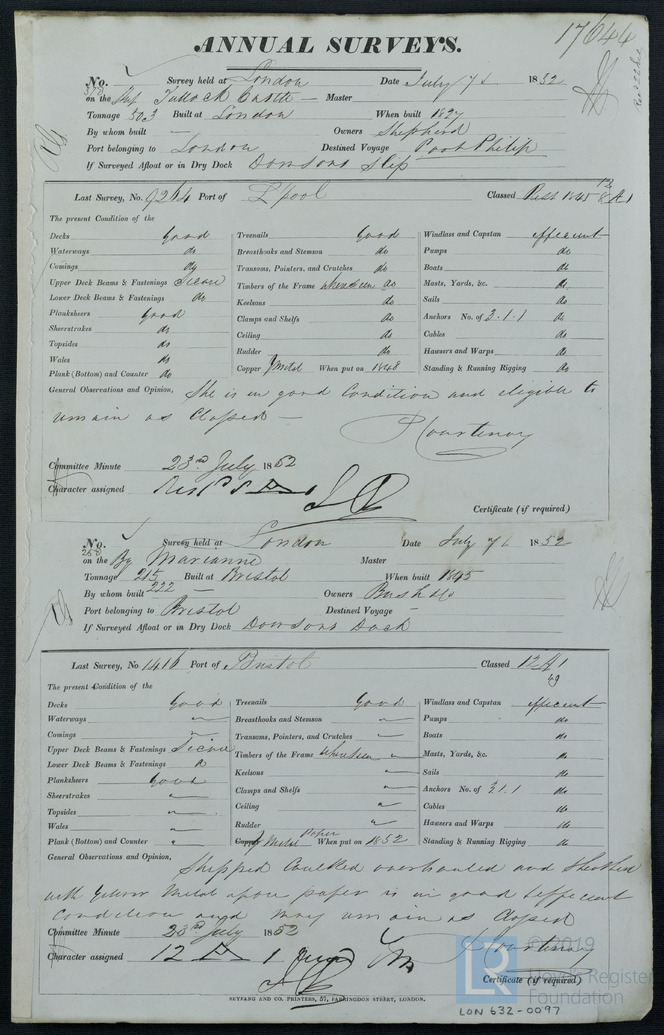 17644
ANNUAL SURVEYS.
No. Survey held at London Date July 7th 1852
on the Ship Tullock Castle — Master
Tonnage 303 Built at London When built 1827
By whom built — Owners Shepherd
Port belonging to London Destined Voyage Port Philip
If Surveyed Afloat or in Dry Dock Dowsons Slip
Last Survey, No. 9264 Port of L'pool Classed Rest 1845
The present Condition of the
Decks Good Treenails Good Windlass and Capstan efficient
Waterways do Breasthooks and Stemson do Pumps do
Comings do Transoms, Pointers, and Crutches do Boats do
Upper Deck Beams & Fastenings Secure Timbers of the Frame when seen do Masts, Yards, &c. do
Lower Deck Beams & Fastenings do Keelsons do Sails do
Planksheers Good Clamps and Shelfs do Anchors No. of 3.1.1 do
Sheerstrakes do Ceiling do Cables do
Topsides do Rudder do Hawsers and Warps do
Wales do Copper Y Metal When put on 1848 Standing & Running Rigging do
Plank (Bottom) and Counter do
General Observations and Opinion, She is in good Condition and eligible to
remain as Classed —
P Courtenay
Committee Minute 23rd July 1852
Character assigned
Certificate (if required)
No. Survey held at London Date July 7th 1852
on the Bg Marianne Master
Tonnage 215 Built at Bristol When built 1845
222
By whom built — Owners Bushell
Port belonging to Bristol Destined Voyage —
If Surveyed Afloat or in Dry Dock Dowsons Dock
Last Survey, No. 1416 Port of Bristol Classed 12 A 1
49
The present Condition of the
Decks Good Treenails Good Windlass and Capstan efficient
Waterways Breasthooks and Stemson Pumps do
Comings Transoms, Pointers, and Crutches Boats do
Upper Deck Beams & Fastenings Secure Timbers of the Frame when seen Masts, Yards, &c. do
Lower Deck Beams & Fastenings Keelsons Sails do
Planksheers Good Clamps and Shelfs Anchors No. of 2.1.1 do
Sheerstrakes Ceiling Cables do
Topsides Rudder Hawsers and Warps do
Wales Copper Y Metal Paper When put on 1852 Standing & Running Rigging do
Plank (Bottom) and Counter
General Observations and Opinion, Stripped Caulked overhauled and Sheathed
with Yellow Metal upon paper is in good & efficient
Condition and may remain as Classed
Committee Minute 23rd July 1852
P Courtenay
Character assigned 12 A 1
Certificate (if required)
SEYFANG AND CO. PRINTERS, 57, FARRINGDON STREET, LONDON.
© 2019
LR
Lloyd's Register
Foundation
LON 632-0097